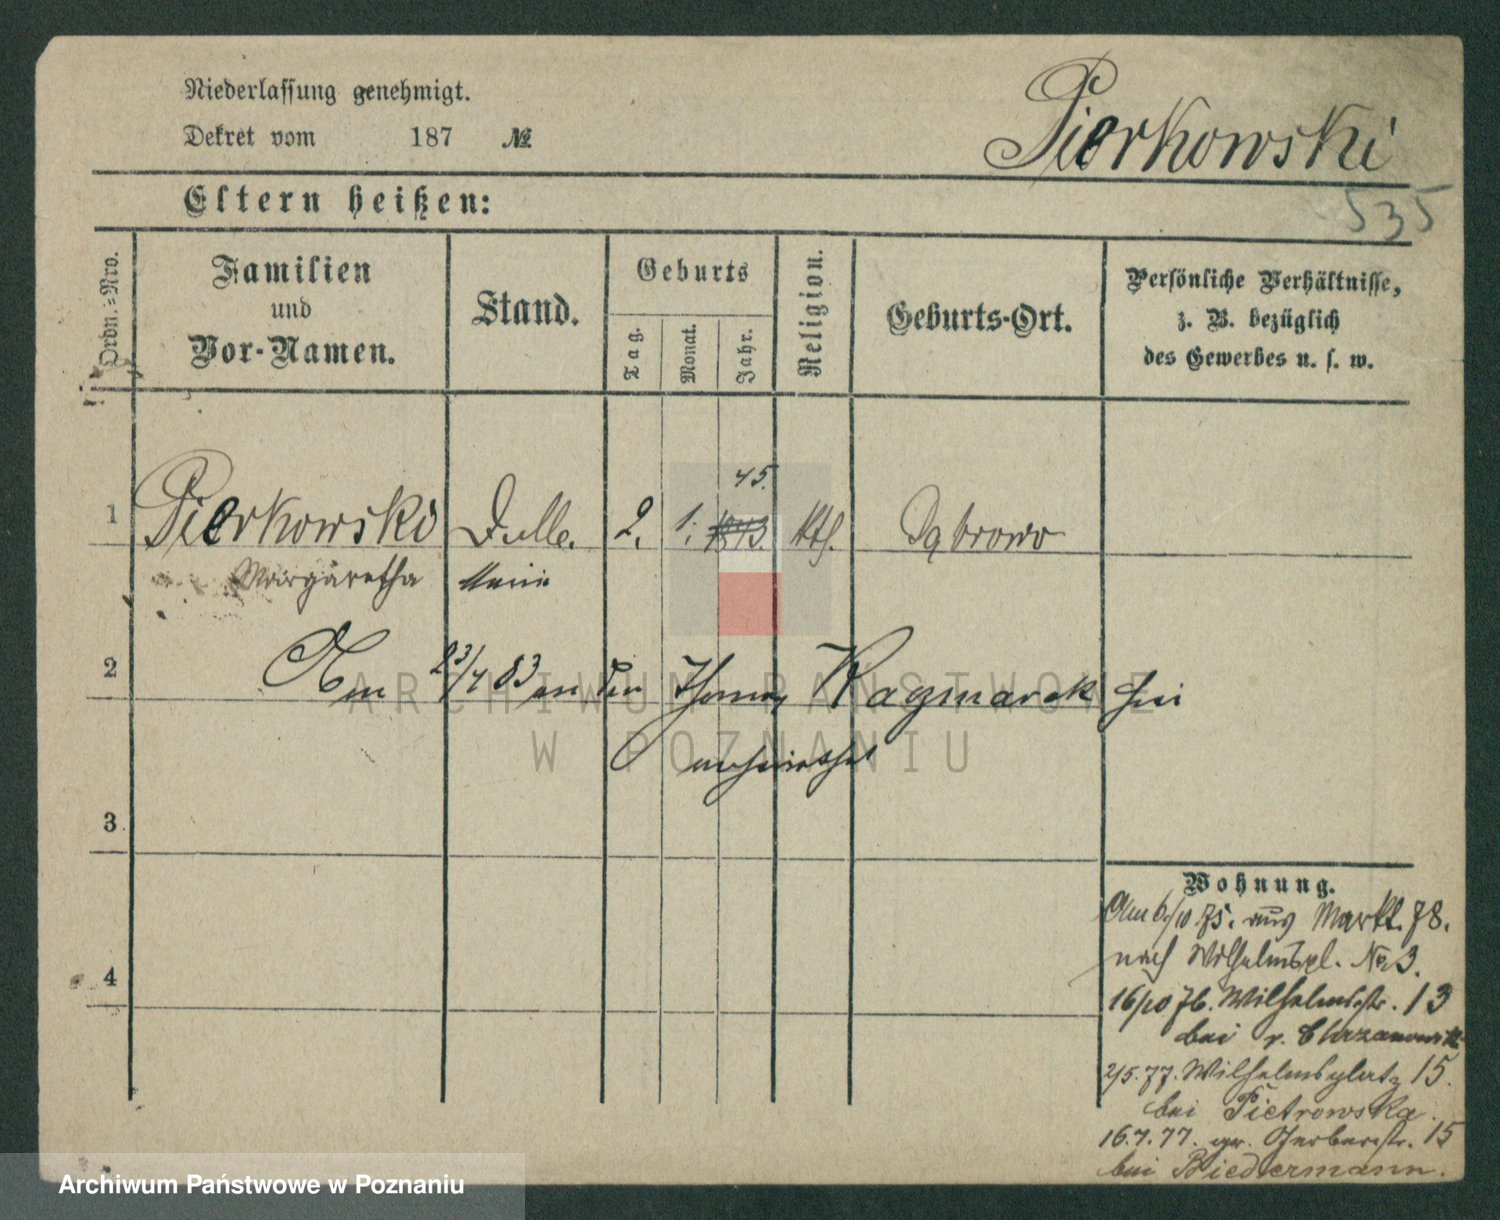 Niederlassung genehmigt.
Dekret vom 187 №
Pierkowski
535
Eltern heißen:
Ordn.=Nro.
Familien
und
Vor-Namen.
Stand.
Geburts
Tag.
Monat.
Jahr.
Religion.
Geburts-Ort.
Persönliche Verhältnisse,
z. B. bezüglich
des Gewerbes u. s. w.
45.
1 Pierkowski 2. 1. 1843. kth. Dąbrowo
Margaretha
2 23/4 83 an den Thomas Kazmarek
3
4
Wohnung.
Am 6/10 75. aus Markt. 78.
nach Wilhelmspl. No 3.
16/10 76. Wilhelmsstr. 13
bei v. Chrzanowski
2/5. 77. Wilhelmsplatz 15.
bei Pietrowska.
16.7.77. gr. Gerberstr. 15
bei Biedermann.
ARCHIWUM PAŃSTWOWE
W POZNANIU
Archiwum Państwowe w Poznaniu